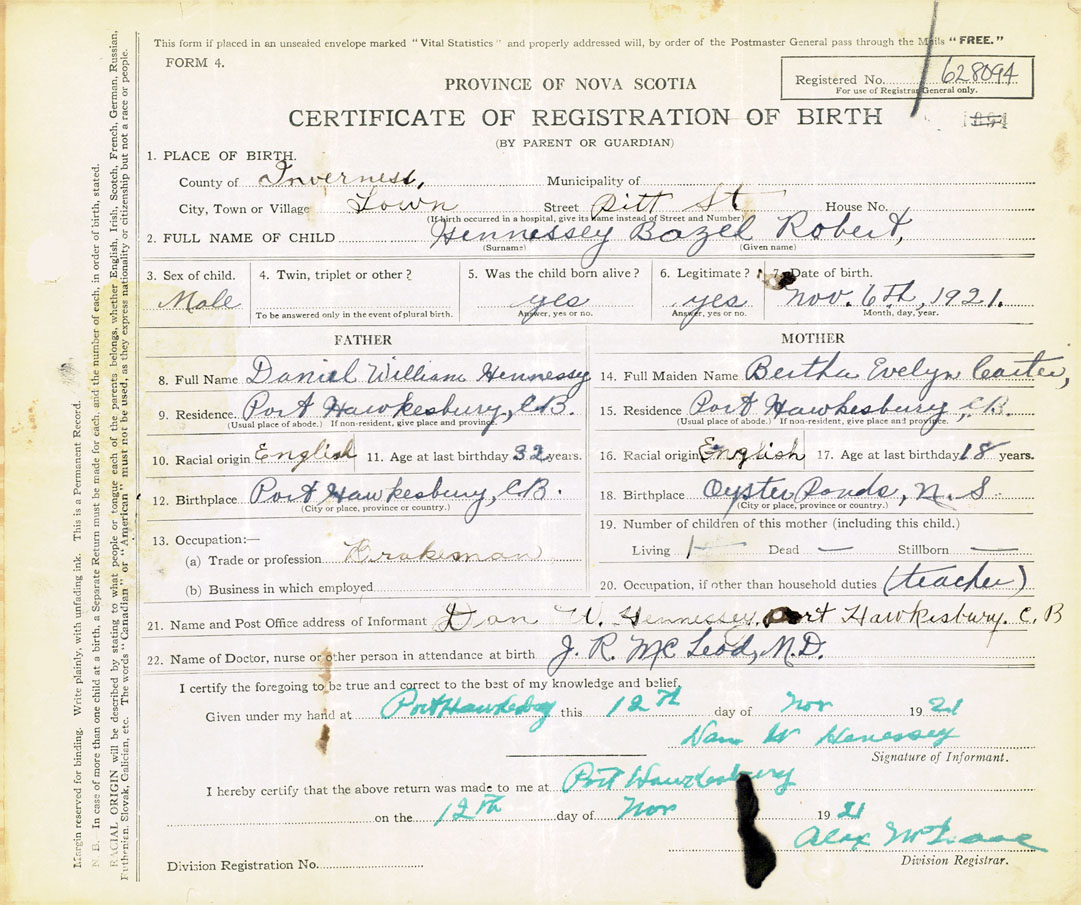 This form if placed in an unsealed envelope marked "Vital Statistics" and properly addressed will, by order of the Postmaster General pass through the Mails "FREE."
FORM 4.
Registered No. 628094
For use of Registrar General only.
PROVINCE OF NOVA SCOTIA
CERTIFICATE OF REGISTRATION OF BIRTH
(BY PARENT OR GUARDIAN)
1. PLACE OF BIRTH.
County of Inverness, Municipality of
City, Town or Village Town Street Pitt St House No.
(If birth occurred in a hospital, give its name instead of Street and Number)
2. FULL NAME OF CHILD Hennessey Bazel Robert,
(Surname) (Given name)
3. Sex of child. 4. Twin, triplet or other? 5. Was the child born alive? 6. Legitimate? 7. Date of birth.
Male yes yes Nov. 6th, 1921.
To be answered only in the event of plural birth. Answer, yes or no. Answer, yes or no. Month, day, year.
FATHER
8. Full Name Daniel William Hennessy
9. Residence. Port Hawkesbury, C.B.
(Usual place of abode.) If non-resident, give place and province.
10. Racial origin English 11. Age at last birthday 32 years.
12. Birthplace Port Hawkesbury, C.B.
(City or place, province or country.)
13. Occupation:—
(a) Trade or profession Brakeman
(b) Business in which employed
MOTHER
14. Full Maiden Name Bertha Evelyn Carter,
15. Residence Port Hawkesbury, C.B.
(Usual place of abode.) If non-resident, give place and province.
16. Racial origin English 17. Age at last birthday 18 years.
18. Birthplace Oyster Ponds, N.S.
(City or place, province or country.)
19. Number of children of this mother (including this child.)
Living 1 Dead — Stillborn —
20. Occupation, if other than household duties (teacher)
21. Name and Post Office address of Informant Dan W. Hennessey, Port Hawkesbury. C. B
22. Name of Doctor, nurse or other person in attendance at birth J. R. McLeod, M.D.
I certify the foregoing to be true and correct to the best of my knowledge and belief,
Given under my hand at this 12th day of Nov 1921
Dan W Henessey
Signature of Informant.
I hereby certify that the above return was made to me at Port Hawkesbury
on the 12th day of Nov 1921
Alex McIsaac
Division Registrar.
Division Registration No.
Margin reserved for binding. Write plainly, with unfading ink. This is a Permanent Record.
N. B. In case of more than one child at a birth, a Separate Return must be made for each, and the number of each, in order of birth, stated.
RACIAL ORIGIN will be described by stating to what people or tongue each of the parents belongs, whether English, Irish, Scotch, French, German, Russian,
Ruthenian, Slovak, Galician, etc. The words "Canadian" or "American" must not be used, as they express nationality or citizenship but not a race or people.